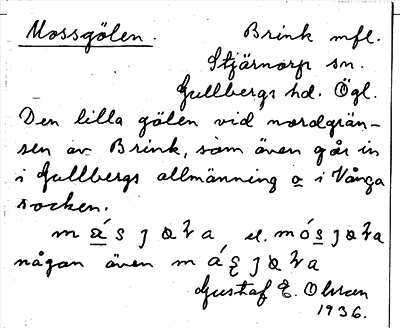 Mossgölen. Brink mfl.
Stjärnorp sn.
Gullbergs hd. Ögl.
Den lilla gölen vid nordgrän-
sen av Brink, som även går in
i Gullbergs allmänning o i Vånga
socken.
el.
någon även
Gustaf E. Olsson
1936.